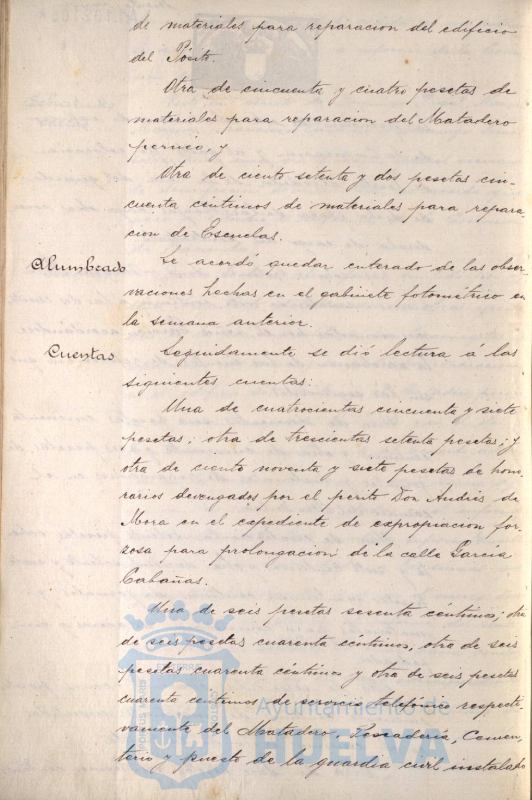 de materiales para reparacion del edificio
del Pósito.
Otra de cincuenta y cuatro pesetas de
materiales para reparacion del Matadero
y
Otra de ciento setenta y dos pesetas cin-
cuenta céntimos de materiales para repara-
cion de Escuelas.
Alumbrado Se acordó quedar enterado de las obser
vaciones hechas en el gabinete fotométrico en
la semana anterior.
Cuentas Seguidamente se dió lectura á las
siguientes cuentas:
Una de cuatrocientas cincuenta y siete
pesetas; otra de trescientas setenta pesetas; y
otra de ciento noventa y siete pesetas de hono-
rarios devengados por el perito Don Andrés de
Mora en el expediente de expropiacion for-
zosa para prolongacion de la calle Garcia
Cabañas.
Una de seis pesetas sesenta céntimos; otra
de seis pesetas cuarenta céntimos, otra de seis
pesetas cuarenta céntimos y otra de seis pesetas
cuarenta centimos de servicio telefónico respecti-
vamente del Matadero, Pescadería, Cemen-
terio y puesto de la guardia civil instalado
Ayuntamiento de
HUELVA